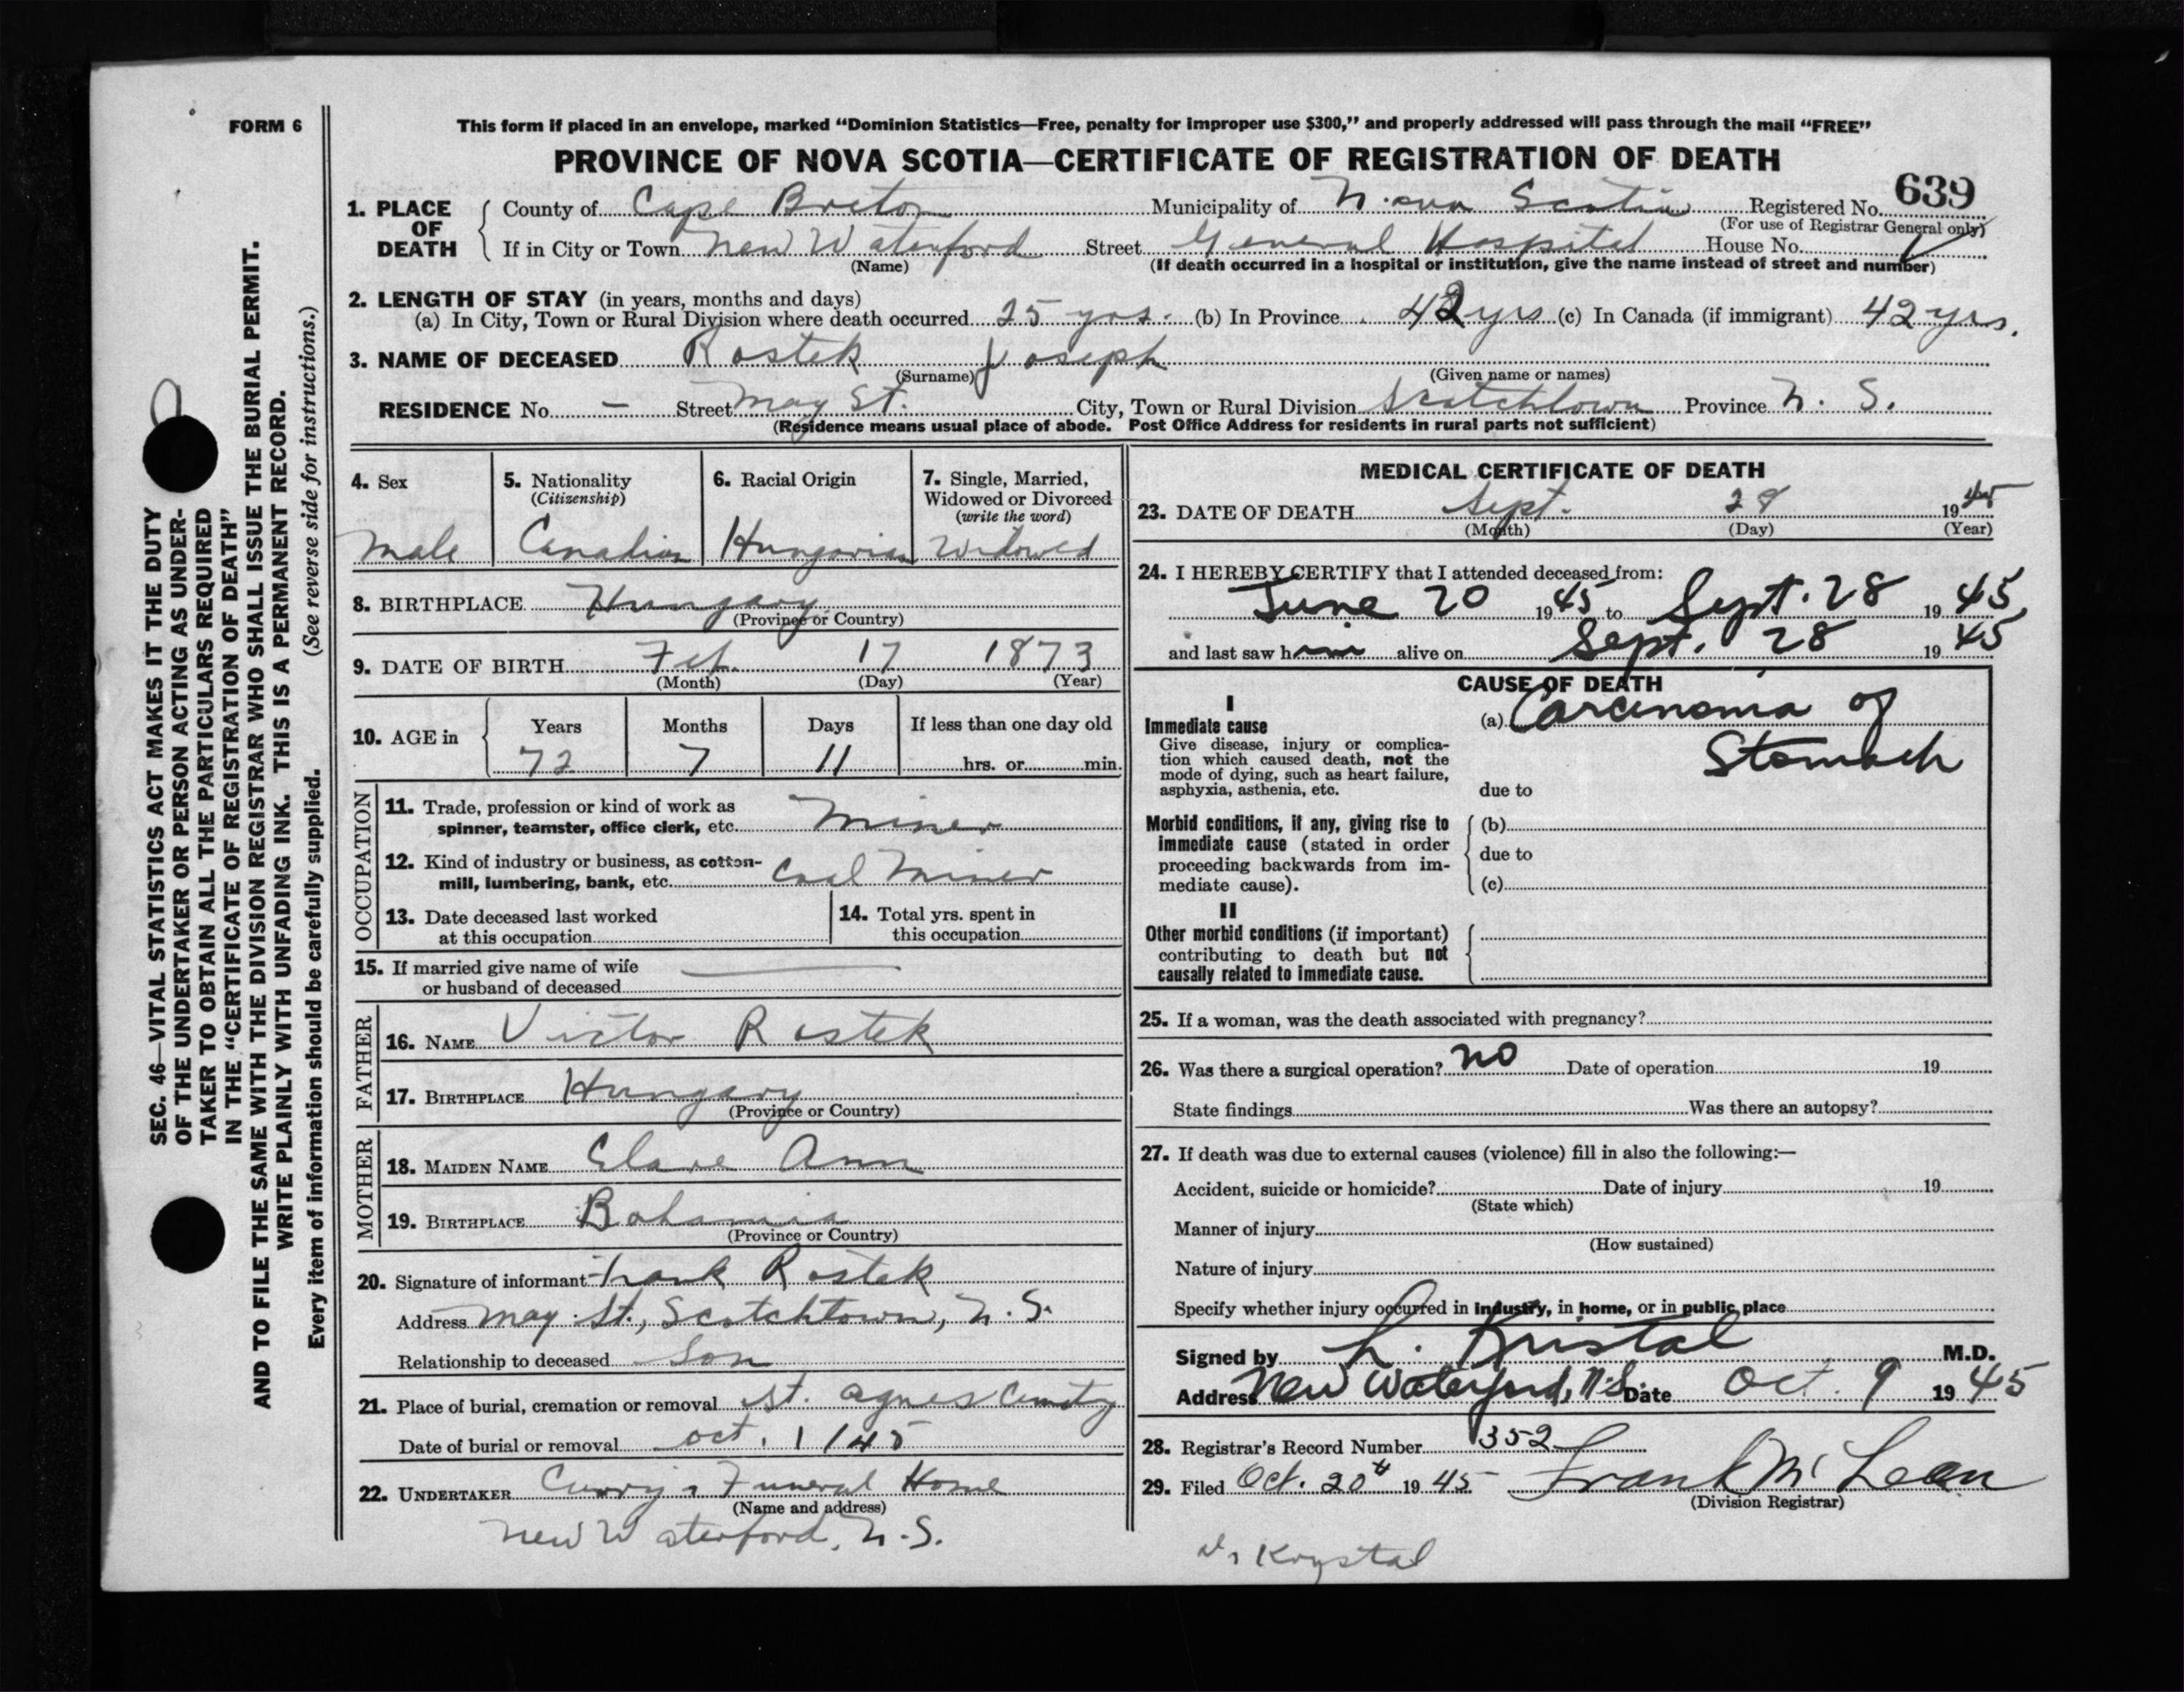 FORM 6
This form if placed in an envelope, marked "Dominion Statistics—Free, penalty for improper use $300," and properly addressed will pass through the mail "FREE"
PROVINCE OF NOVA SCOTIA—CERTIFICATE OF REGISTRATION OF DEATH
639
1. PLACE OF DEATH
County of Cape Breton Municipality of Nova Scotia Registered No.
(For use of Registrar General only)
If in City or Town New Waterford Street General Hospital House No.
(Name) (If death occurred in a hospital or institution, give the name instead of street and number)
2. LENGTH OF STAY (in years, months and days)
(a) In City, Town or Rural Division where death occurred 25 yrs. (b) In Province 42 yrs (c) In Canada (if immigrant) 42 yrs.
3. NAME OF DECEASED Rostek Joseph
(Surname) (Given name or names)
RESIDENCE No. — Street May St. City, Town or Rural Division Scotchtown Province N. S.
(Residence means usual place of abode. Post Office Address for residents in rural parts not sufficient)
4. Sex
Male
5. Nationality
(Citizenship)
Canadian
6. Racial Origin
Hungarian
7. Single, Married,
Widowed or Divorced
(write the word)
Widowed
8. BIRTHPLACE Hungary
(Province or Country)
9. DATE OF BIRTH Feb. 17 1873
(Month) (Day) (Year)
10. AGE in
Years Months Days If less than one day old
72 7 11 hrs. or min.
OCCUPATION
11. Trade, profession or kind of work as
spinner, teamster, office clerk, etc. Miner
12. Kind of industry or business, as cotton-
mill, lumbering, bank, etc. Coal Miner
13. Date deceased last worked
at this occupation
14. Total yrs. spent in
this occupation
15. If married give name of wife
or husband of deceased
FATHER
16. NAME Victor Rostek
17. BIRTHPLACE Hungary
(Province or Country)
MOTHER
18. MAIDEN NAME Ann
19. BIRTHPLACE Bohamia
(Province or Country)
20. Signature of informant Frank Rostek
Address May St., Scotchtown, N.S.
Relationship to deceased Son
21. Place of burial, cremation or removal St. Agnes
Date of burial or removal Oct. 1/45
22. UNDERTAKER Curry's Funeral Home
(Name and address)
New Waterford, N.S.
MEDICAL CERTIFICATE OF DEATH
23. DATE OF DEATH Sept. 28 1945
(Month) (Day) (Year)
24. I HEREBY CERTIFY that I attended deceased from:
June 20 1945 to Sept. 28 1945,
and last saw him alive on Sept. 28 1945
CAUSE OF DEATH
I
Immediate cause
Give disease, injury or complica-
tion which caused death, not the
mode of dying, such as heart failure,
asphyxia, asthenia, etc.
(a) Carcinoma of
Stomach
due to
Morbid conditions, if any, giving rise to
immediate cause (stated in order
proceeding backwards from im-
mediate cause).
(b)
due to
(c)
II
Other morbid conditions (if important)
contributing to death but not
causally related to immediate cause.
25. If a woman, was the death associated with pregnancy?
26. Was there a surgical operation? no Date of operation 19
State findings Was there an autopsy?
27. If death was due to external causes (violence) fill in also the following:—
Accident, suicide or homicide? Date of injury 19
(State which)
Manner of injury
(How sustained)
Nature of injury
Specify whether injury occurred in industry, in home, or in public place
Signed by L. Kristal M.D.
Address New Waterford, N.S. Date Oct. 9 1945
28. Registrar's Record Number 352
29. Filed Oct. 20th 1945 Frank McLean
(Division Registrar)
Dr Krystal
SEC. 46—VITAL STATISTICS ACT MAKES IT THE DUTY
OF THE UNDERTAKER OR PERSON ACTING AS UNDER-
TAKER TO OBTAIN ALL THE PARTICULARS REQUIRED
IN THE "CERTIFICATE OF REGISTRATION OF DEATH"
AND TO FILE THE SAME WITH THE DIVISION REGISTRAR WHO SHALL ISSUE THE BURIAL PERMIT.
WRITE PLAINLY WITH UNFADING INK. THIS IS A PERMANENT RECORD.
Every item of information should be carefully supplied. (See reverse side for instructions.)